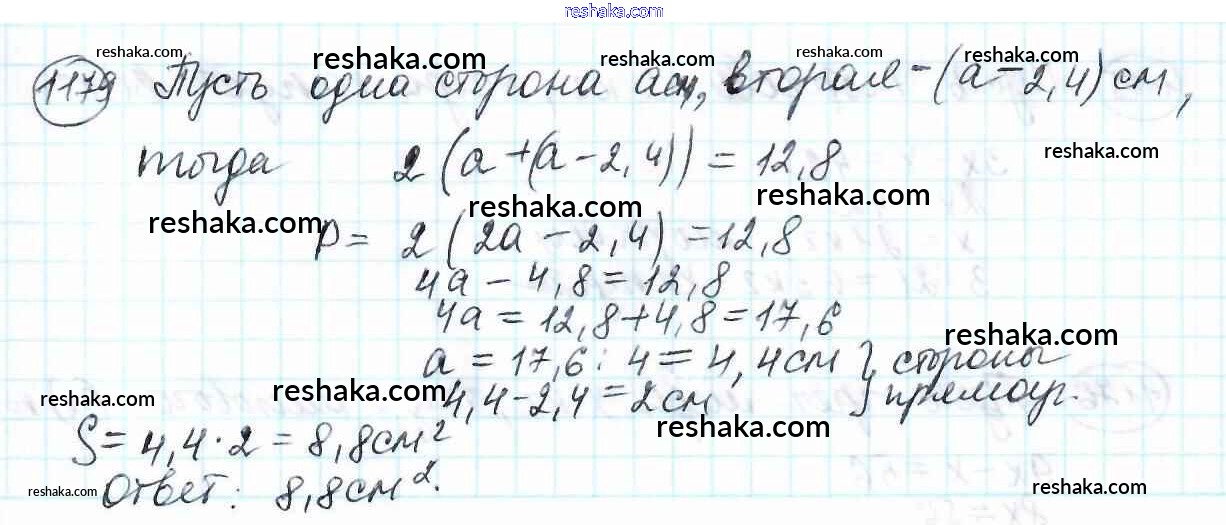 reshaka.com
reshaka.com reshaka.com reshaka.com reshaka.com
1179 Пусть одна сторона а см, вторая - (а - 2,4) см,
тогда 2(а+(а - 2,4)) = 12,8
reshaka.com
reshaka.com reshaka.com reshaka.com
P = 2(2а - 2,4) = 12,8
4а - 4,8 = 12,8
4а = 12,8+4,8 = 17,6
reshaka.com
а = 17,6 : 4 = 4,4 см } стороны
4,4 - 2,4 = 2 см } прямоуг.
reshaka.com reshaka.com
reshaka.com
S = 4,4 · 2 = 8,8 см²
Ответ: 8,8 см².
reshaka.com reshaka.com